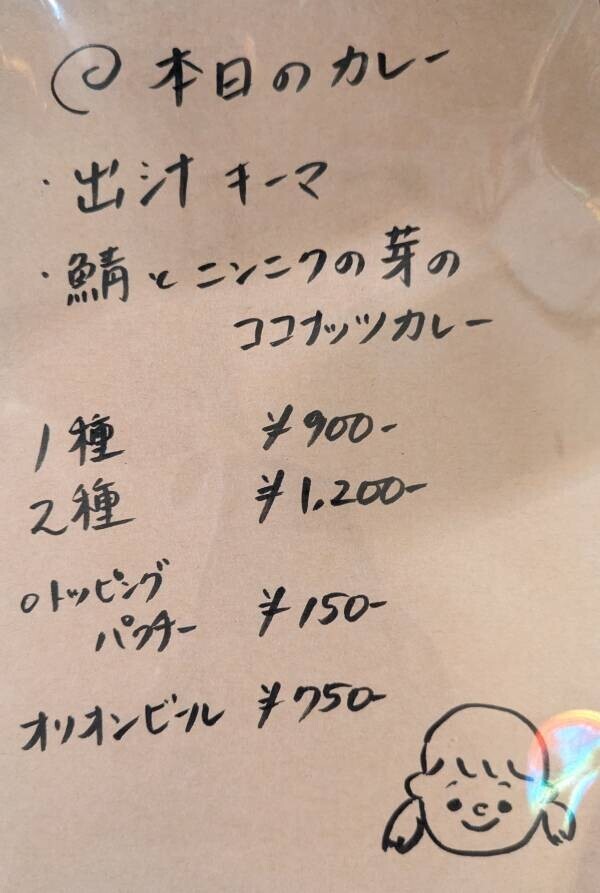 本日のカレー
・出汁キーマ
・鯖とニンニクの芽の
ココナッツカレー
1種 ¥900-
2種 ¥1,200-
○トッピング
パクチー ¥150-
オリオンビール ¥750-